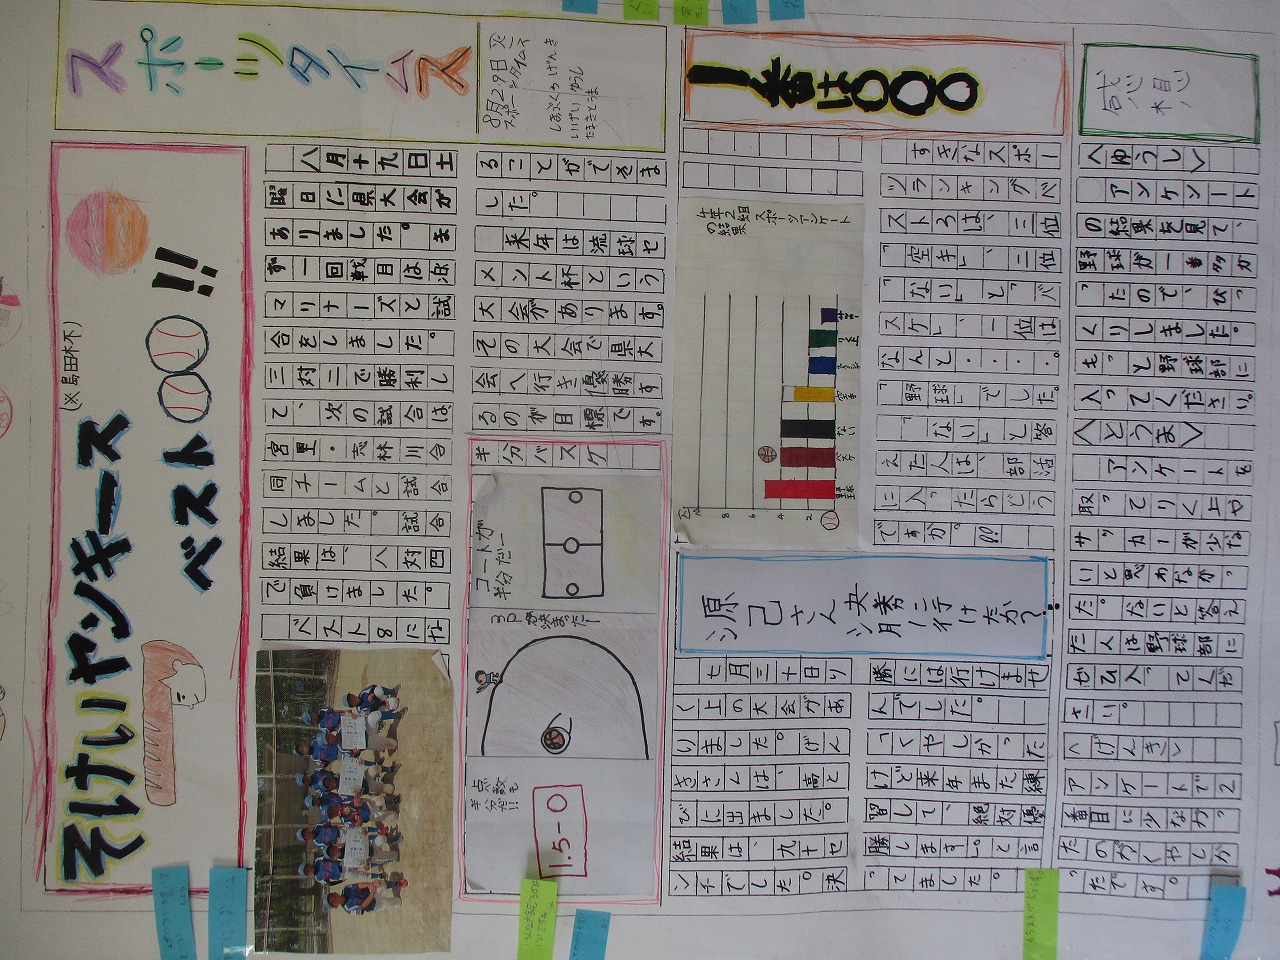 スポーツタイムズ
8月29日(火)
スポーツタイムズ
しまぶくろげんき
いけい ゆうし
たまきとうま
そけいヤンキース
ベスト!!
八月十九日土
曜日に県大会が
ありました。ま
ず一回戦目は
マリナーズと試
合をしました。
三対二で勝利し
て、次の試合は、
宮里・志林川合
同チームと試合
しました。試合
結果は、八対四
で負けました。
ベスト8にな
ることができま
した。
来年は流球セ
メント杯という
大会があります。
その大会で県大
会へ行き優勝す
るのが目標です。
半分バスケ
コートが
半分だー
3P
決まったー!
点数も
半分だ!!
1.5-0
1番は〇〇〇
4年2組 スポーツアンケート
の結果
野球
バスケ
ない
空手
サッカー
すきなスポー
ツランキングベ
スト3は、三位
「空手」、二位
「ない」と「バ
スケ」、一位は
なんと・・・・。
「野球」でした。
「ない」と答
えた人は、部活
に入ったらどう
ですか。!?
源己さん決勝に行けたか?
七月三十日り
く上の大会があ
りました。げん
きさんは、高と
びに出ました。
結果は、九十セ
ンチでした。決
勝には行けませ
んでした。
「くやしかった
けど来年また練
習して、絶対優
勝します。」と言
ってました。
感想
〈ゆうし〉
アンケート
の結果を見て、
野球が一番多か
ったので、びっ
くりしました。
もっと野球部に
入ってください。
〈とうま〉
アンケートを
取ってりく上や
サッカーが少な
いと思わなかっ
た。ないと答え
た人は野球部に
ぜひ入ってくだ
さい。
〈げんき〉
アンケートで2
番目に少なかっ
たのがくやしか
ったです。